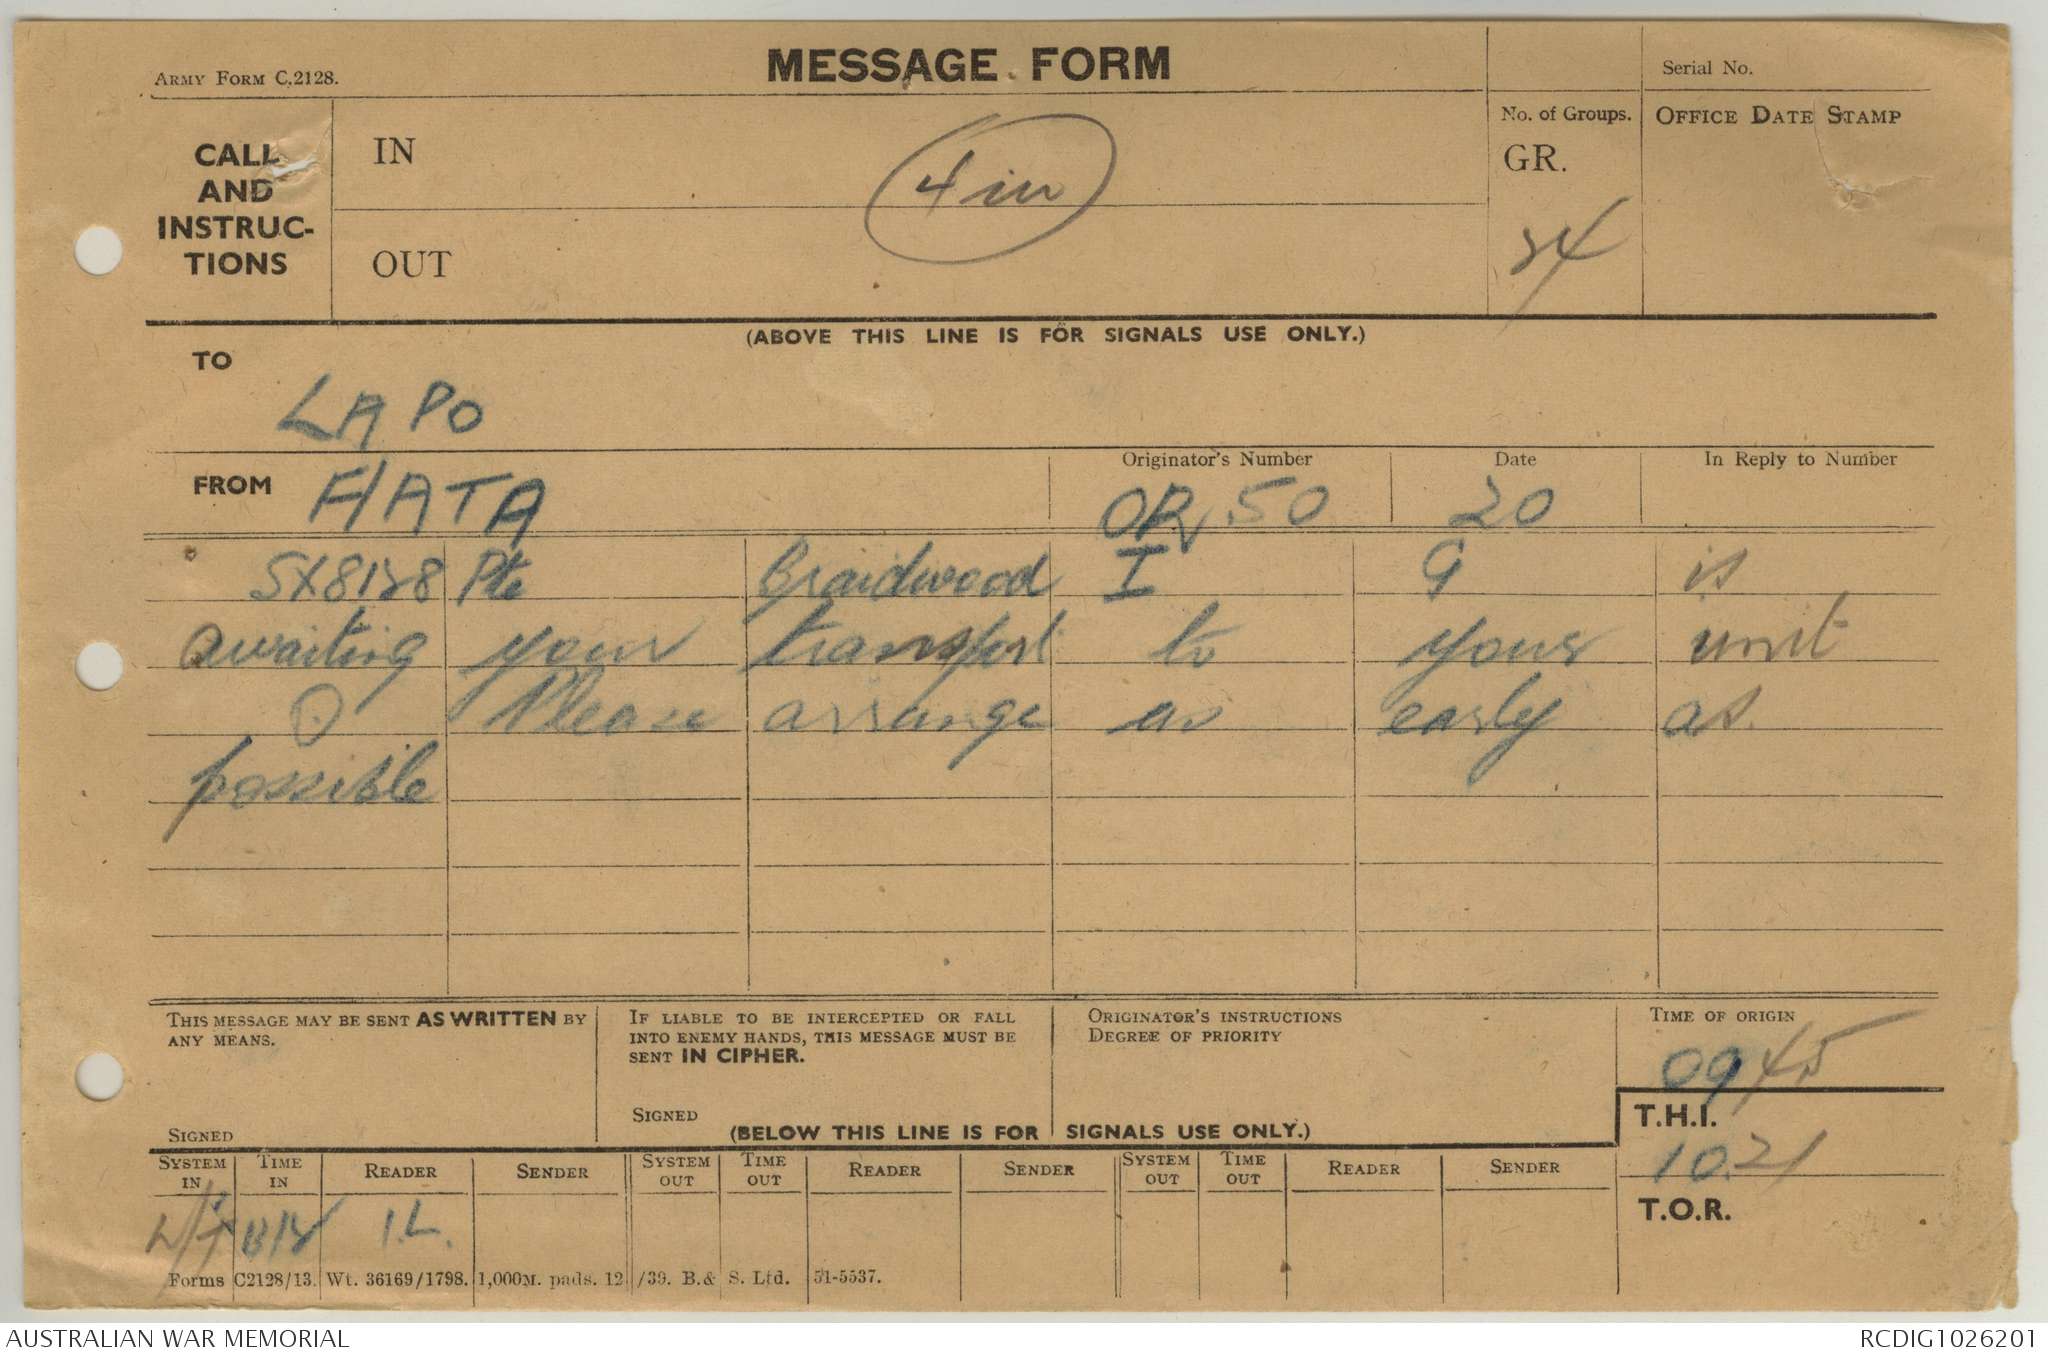 MESSAGE FORM
ARMY FORM C.2128.
Serial No.
CALL AND INSTRUC-TIONS
IN
4 in
No. of Groups.
GR.
OFFICE DATE STAMP
OUT
(ABOVE THIS LINE IS FOR SIGNALS USE ONLY.)
TO
LAPO
FROM HATA
Originator's Number
OR 50
Date
20
In Reply to Number
Pte Braidwood I G is
awaiting your transport to your unit
Please arrange as early as
possible
THIS MESSAGE MAY BE SENT AS WRITTEN BY
ANY MEANS.
SIGNED
IF LIABLE TO BE INTERCEPTED OR FALL
INTO ENEMY HANDS, THIS MESSAGE MUST BE
SENT IN CIPHER.
SIGNED
ORIGINATOR'S INSTRUCTIONS
DEGREE OF PRIORITY
TIME OF ORIGIN
0945
(BELOW THIS LINE IS FOR SIGNALS USE ONLY.)
T.H.I.
1021
T.O.R.
SYSTEM IN TIME IN READER SENDER SYSTEM OUT TIME OUT READER SENDER SYSTEM OUT TIME OUT READER SENDER
I.L.
Forms C2128/13. Wt. 36169/1798. 1,000M. pads. 12/39. B.& S. Ltd. 51-5537.
AUSTRALIAN WAR MEMORIAL
RCDIG1026201